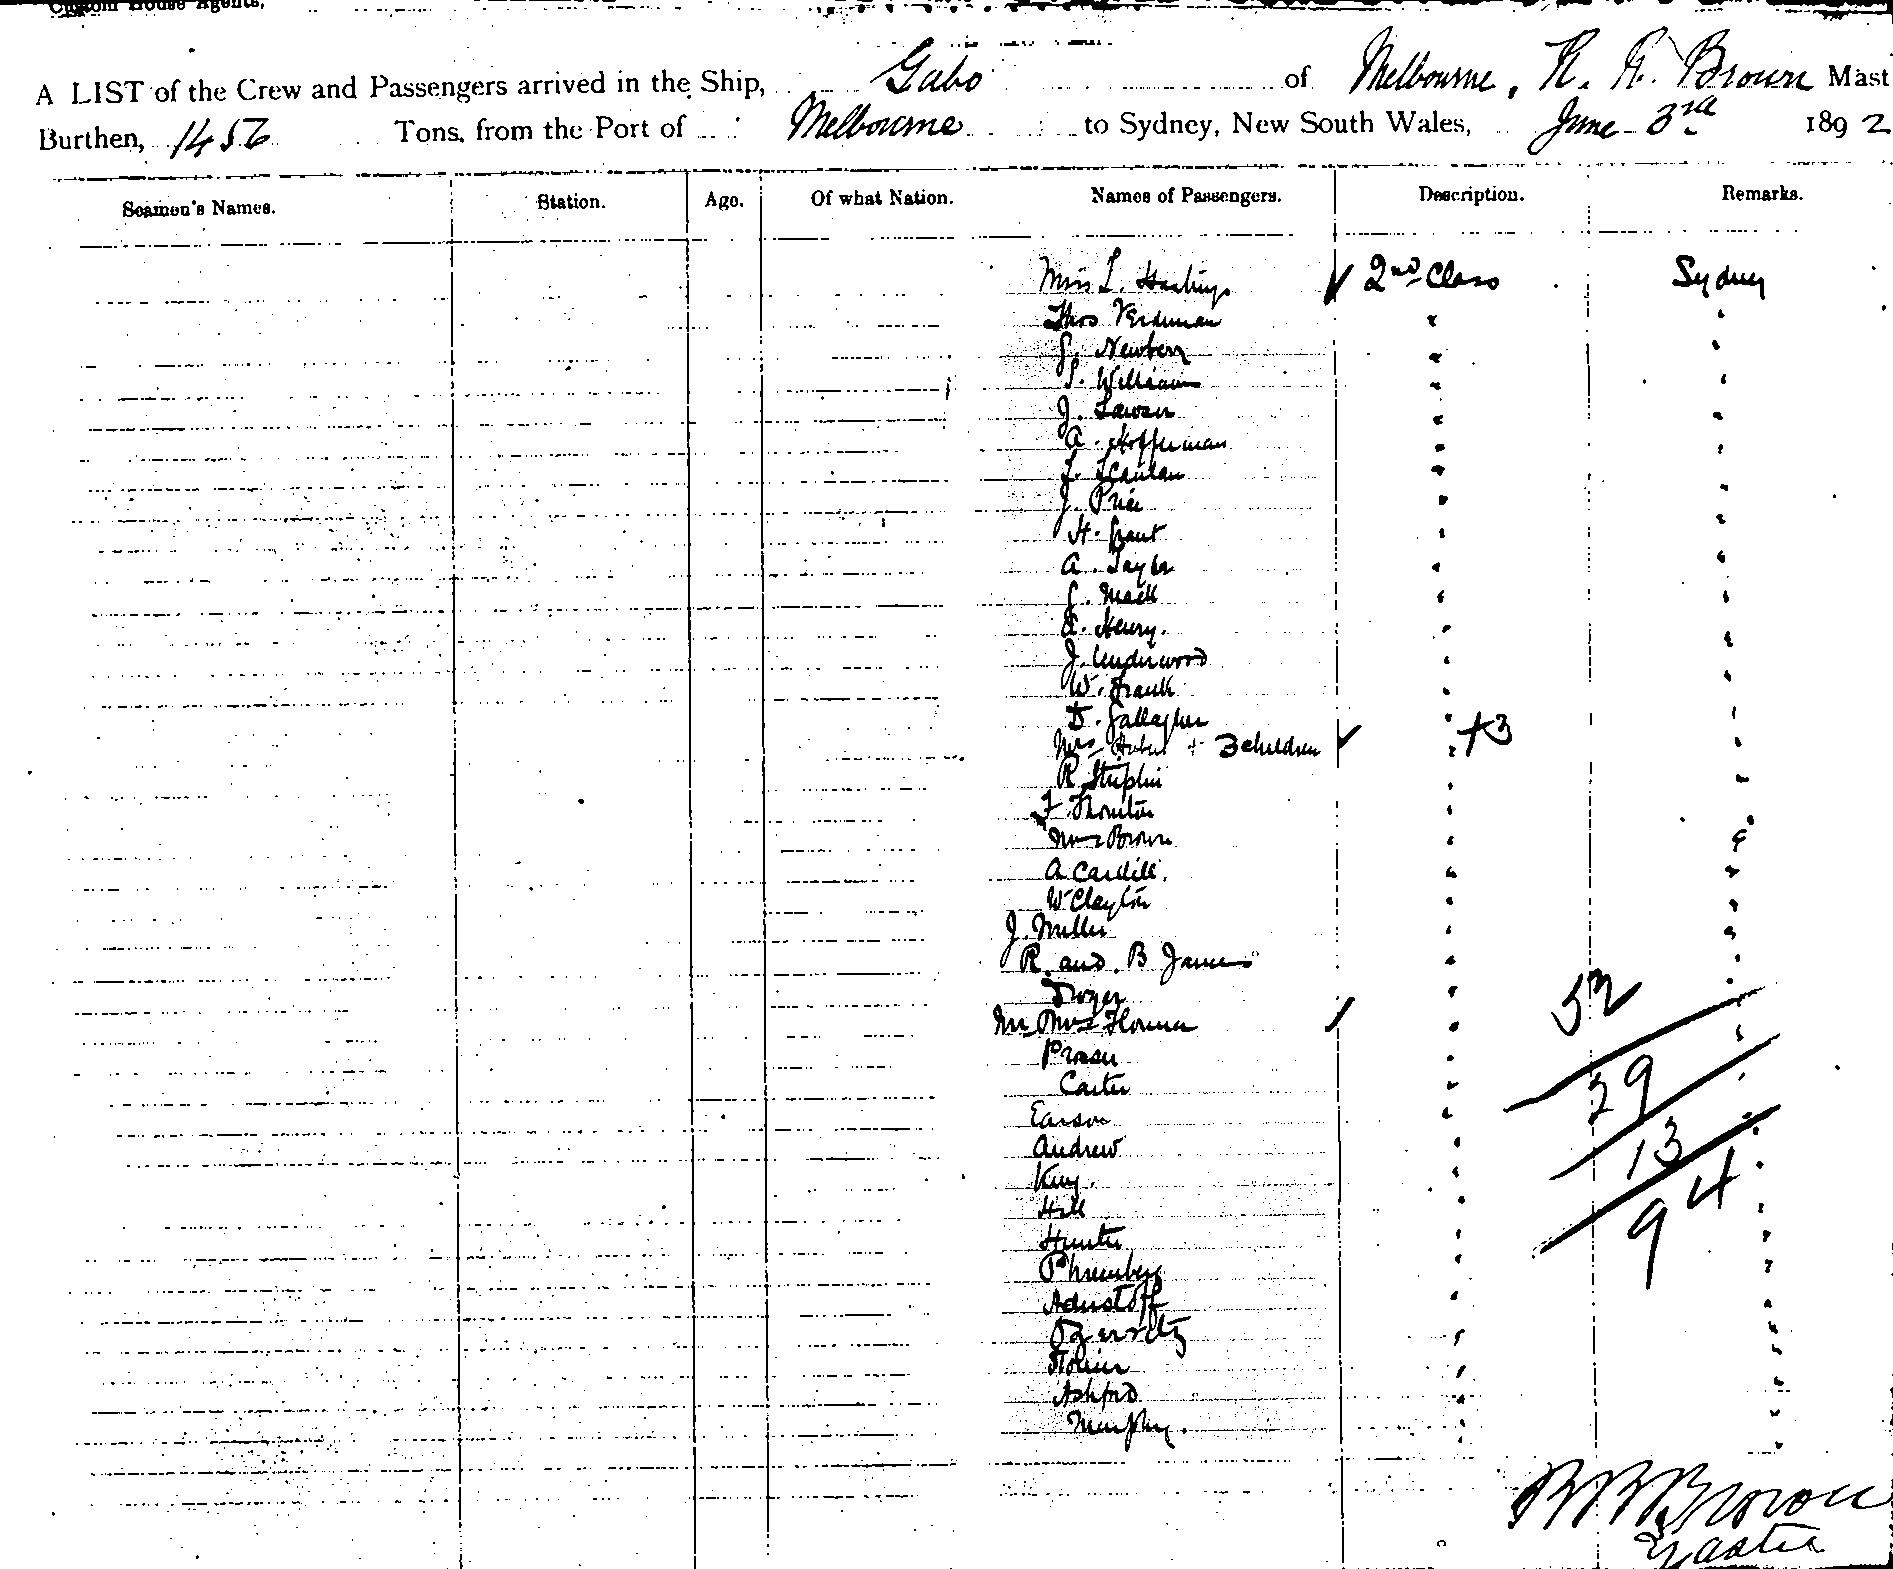 Custom House Agents,
A LIST of the Crew and Passengers arrived in the Ship, Gabo of Melbourne, R. R. Brown Mast
Burthen, 1456 Tons, from the Port of Melbourne to Sydney, New South Wales, June 3rd 1892
Seamen's Names. Station. Age. Of what Nation. Names of Passengers. Description. Remarks.
Miss L. Hastings ✓ 2nd Class Sydney
Thos " "
J. Newberry " "
S. Williams " "
J. Lawson " "
A. Hoffernan " "
J. Scanlan " "
J. Price " "
H. Grant " "
A. Taylor " "
J. Mack " "
E. Henry. " "
J. Underwood " "
W. Frank " "
D. Gallagher " "
Mrs + 3 children ✓ " +3 "
R. " "
F Thornton " "
Mrs Brown " "
A " "
W Clayton " "
J. Miller " "
R. and B James " "
" "
Mr & Mrs ✓ " "
52
" "
Carter " "
29
" "
Andrew " "
13
King. " "
Hill " "
94
Hunter " "
" "
" "
" "
" "
Ashford " "
Murphy. " "
R R Brown
Master